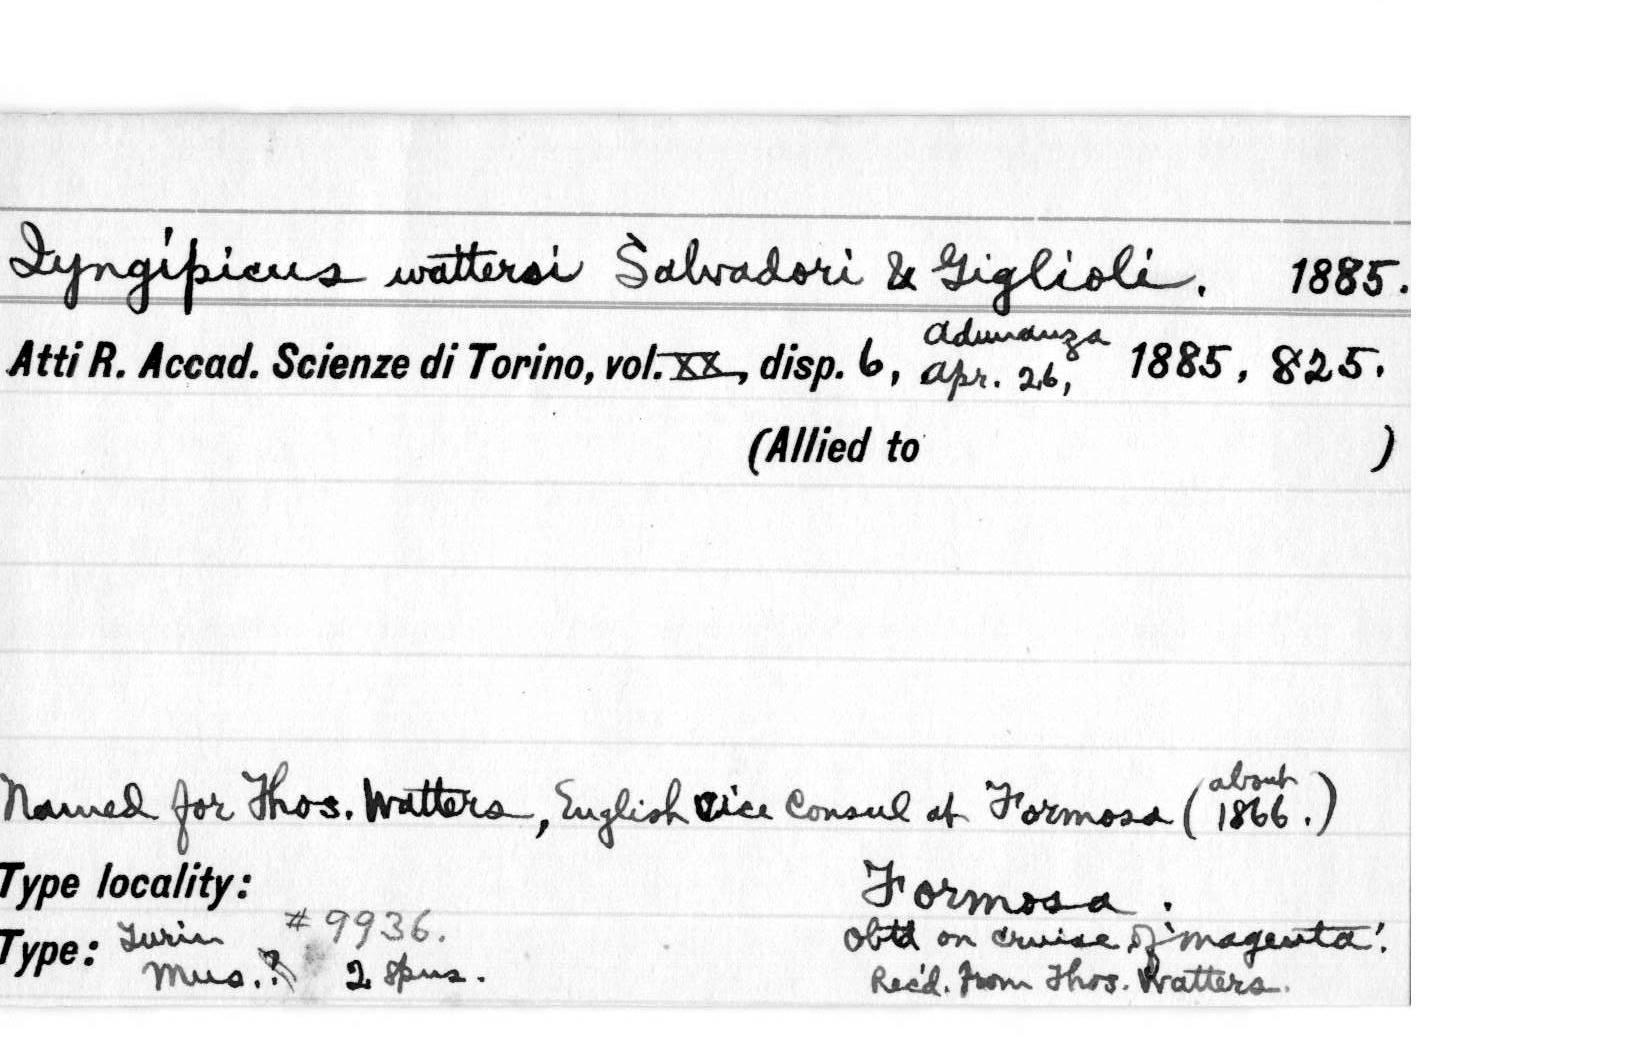 Iyngipicus wattersi Salvadori & Giglioli. 1885.
Atti R. Accad. Scienze di Torino, vol. XX, disp. 6, Adunanza Apr. 26, 1885, 825.
(Allied to )
Named for Thos. Watters, English Vice Consul at Formosa (about 1866.)
Type locality: Formosa.
Type: Turin Mus.? #9936. 2 spms.
Obtd on cruise of 'Magenta'.
Rec'd. from Thos. Watters.